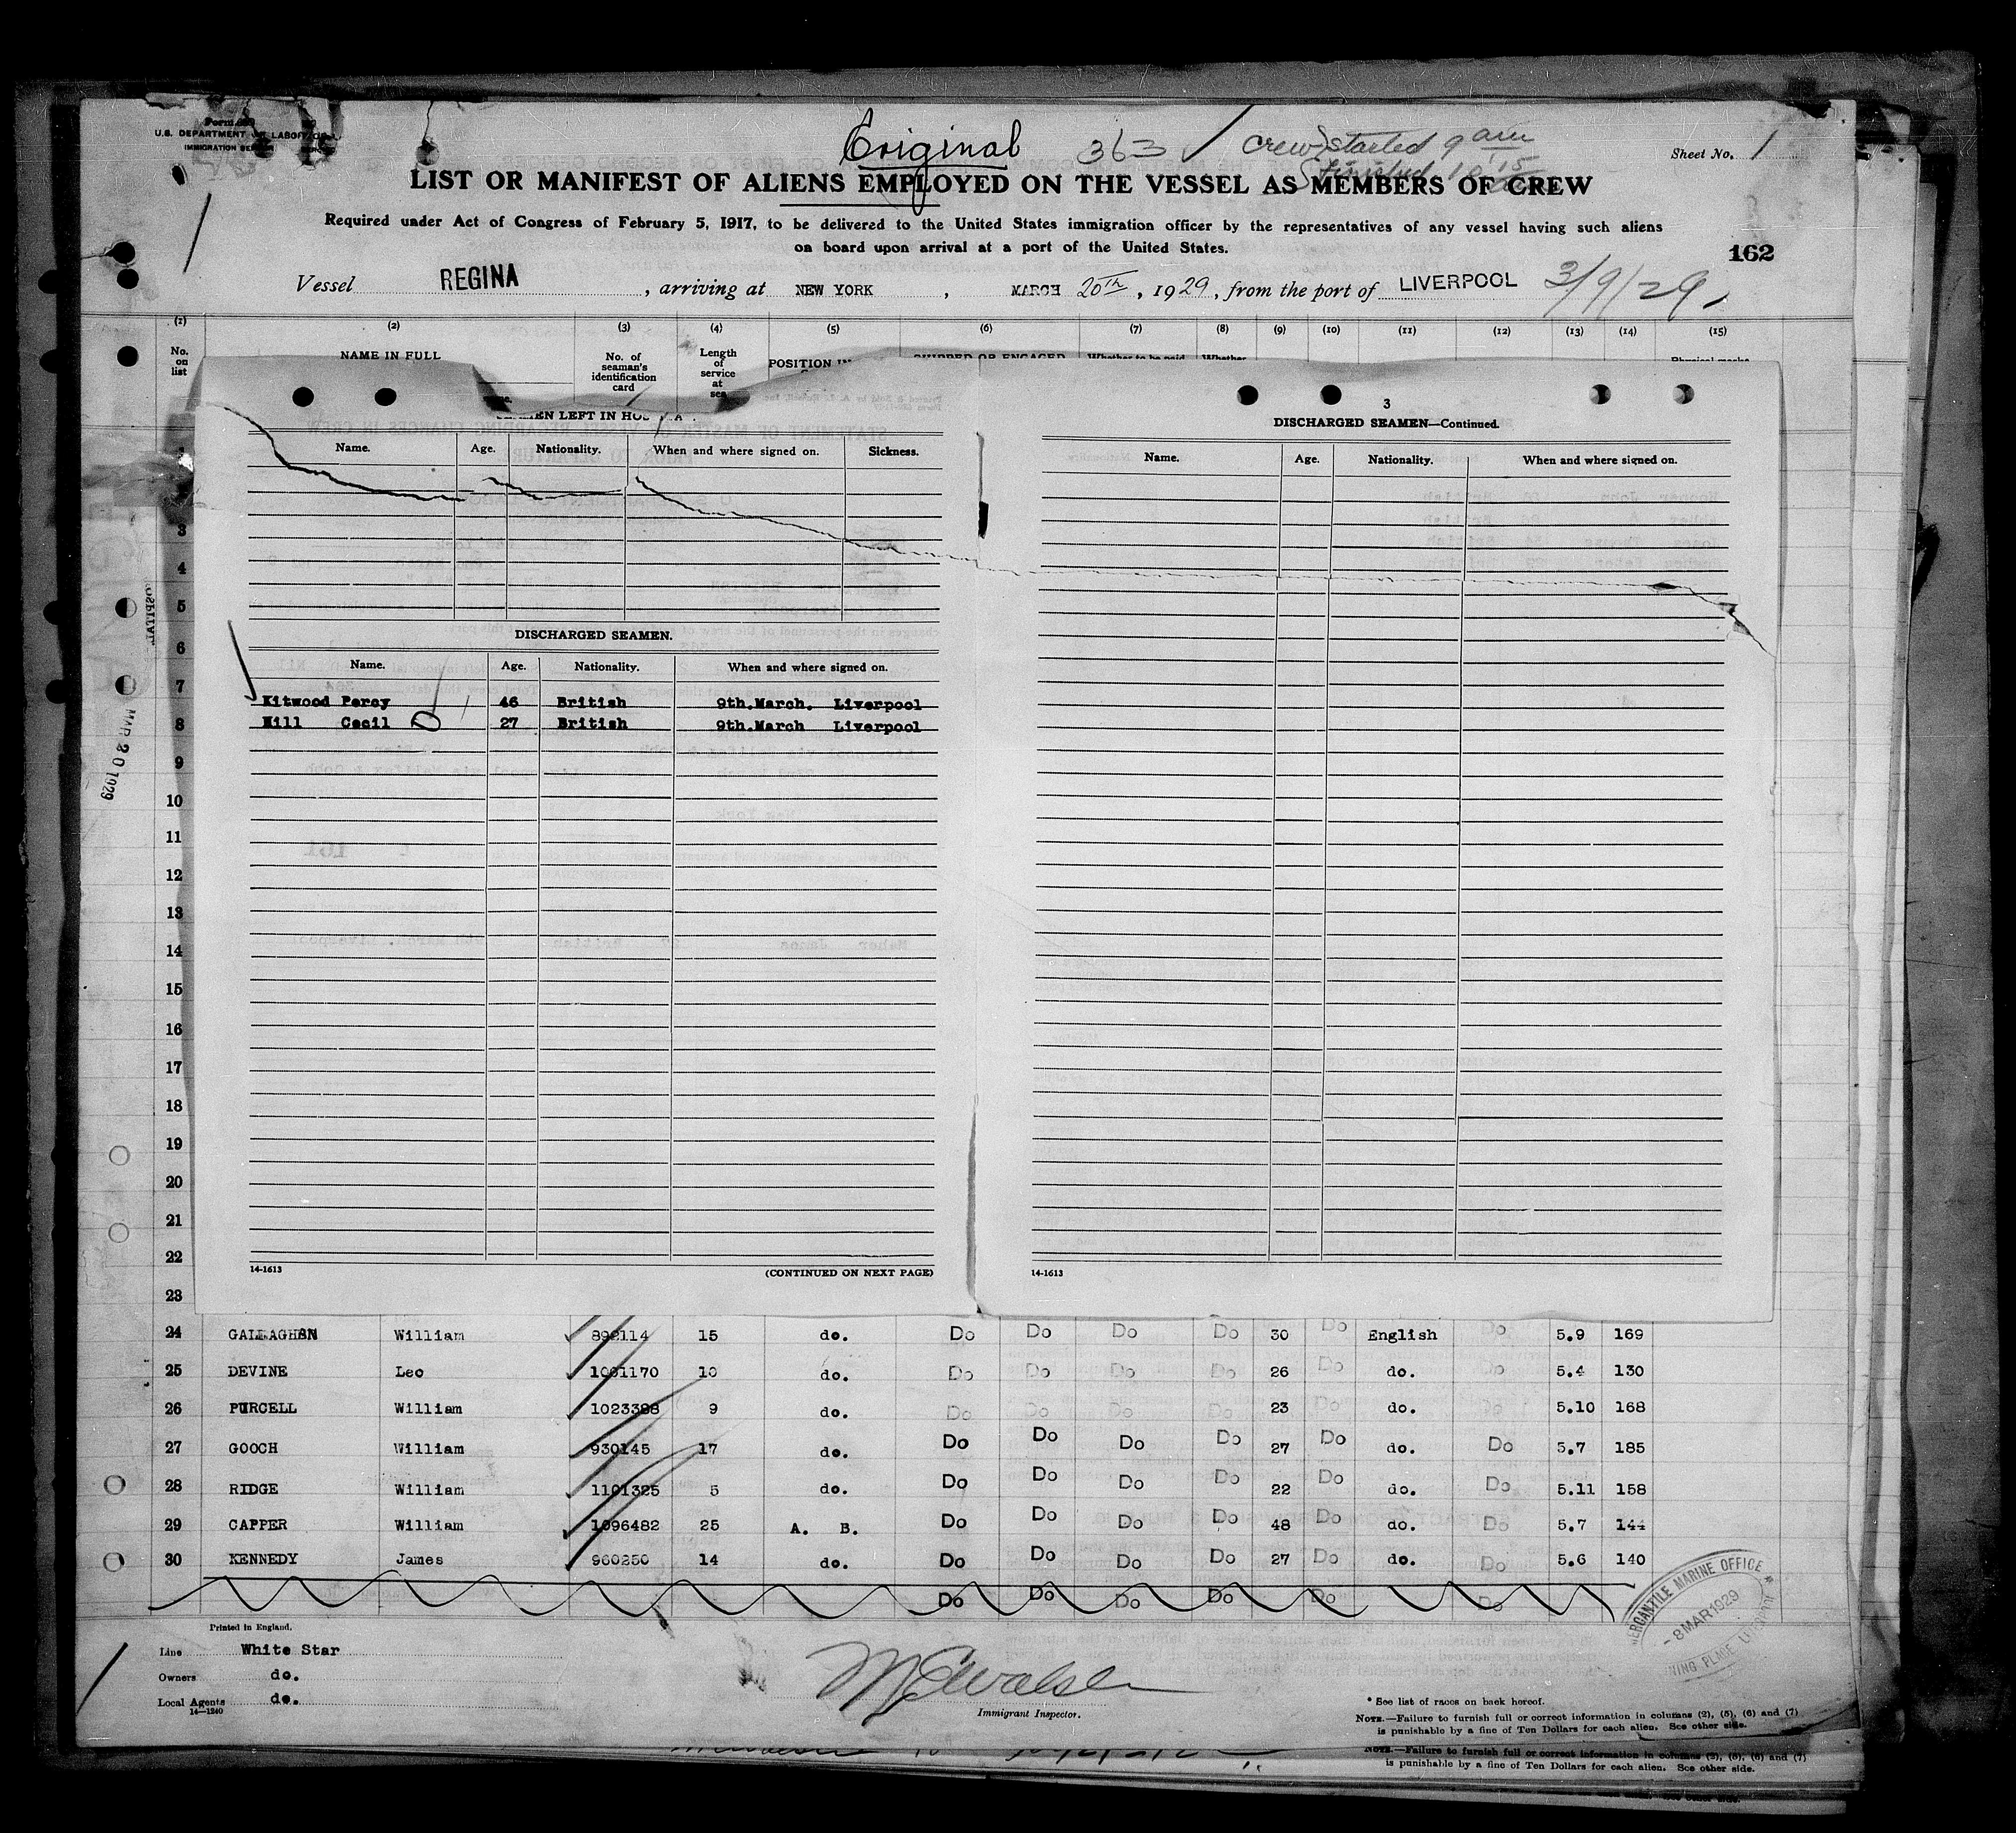 U.S. DEPARTMENT OF LABOR
IMMIGRATION SERVICE
Original 363 ✓ Crew started 9 am
Sheet No. 1
LIST OR MANIFEST OF ALIENS EMPLOYED ON THE VESSEL AS MEMBERS OF CREW
Required under Act of Congress of February 5, 1917, to be delivered to the United States immigration officer by the representatives of any vessel having such aliens
on board upon arrival at a port of the United States.
162
Vessel REGINA, arriving at NEW YORK, MARCH 20th, 1929, from the port of LIVERPOOL 3/9/29
(1) (2) (3) (4) (5) (6) (7) (8) (9) (10) (11) (12) (13) (14) (15)
No. on list
NAME IN FULL
No. of seaman's identification card
Length of service at sea
POSITION IN
SHIPPED OR ENGAGED
Whether to be paid
Whether
Physical marks
LEFT IN
Name. Age. Nationality. When and where signed on. Sickness.
DISCHARGED SEAMEN.
Name. Age. Nationality. When and where signed on.
Kitwood Percy 46 British 9th.March. Liverpool
Hill Cecil 27 British 9th.March Liverpool
14-1613 (CONTINUED ON NEXT PAGE)
3
DISCHARGED SEAMEN—Continued.
Name. Age. Nationality. When and where signed on.
14-1613
MAR 20 1929
3
4
5
6
7
8
9
10
11
12
13
14
15
16
17
18
19
20
21
22
23
24 GALLAGHAN William 898114 15 do. Do Do Do Do 30 Do English Do 5.9 169
25 DEVINE Leo 1001170 10 do. Do Do Do Do 26 Do do. Do 5.4 130
26 PURCELL William 1023398 9 do. Do Do Do Do 23 Do do. Do 5.10 168
27 GOOCH William 930145 17 do. Do Do Do Do 27 Do do. Do 5.7 185
28 RIDGE William 1101325 5 do. Do Do Do Do 22 Do do. Do 5.11 158
29 CAPPER William 1096482 25 A. B. Do Do Do Do 48 Do do. Do 5.7 144
30 KENNEDY James 960250 14 do. Do Do Do Do 27 Do do. Do 5.6 140
Do Do Do Do Do Do
Printed in England.
Line White Star
Owners do.
Local Agents do.
14—1240
Immigrant Inspector.
MERCANTILE MARINE OFFICE
-8 MAR 1929
* See list of races on back hereof.
NOTE.—Failure to furnish full or correct information in columns (2), (5), (6) and (7)
is punishable by a fine of Ten Dollars for each alien. See other side.
NOTE.—Failure to furnish full or correct information in columns (2), (5), (6) and (7)
is punishable by a fine of Ten Dollars for each alien. See other side.